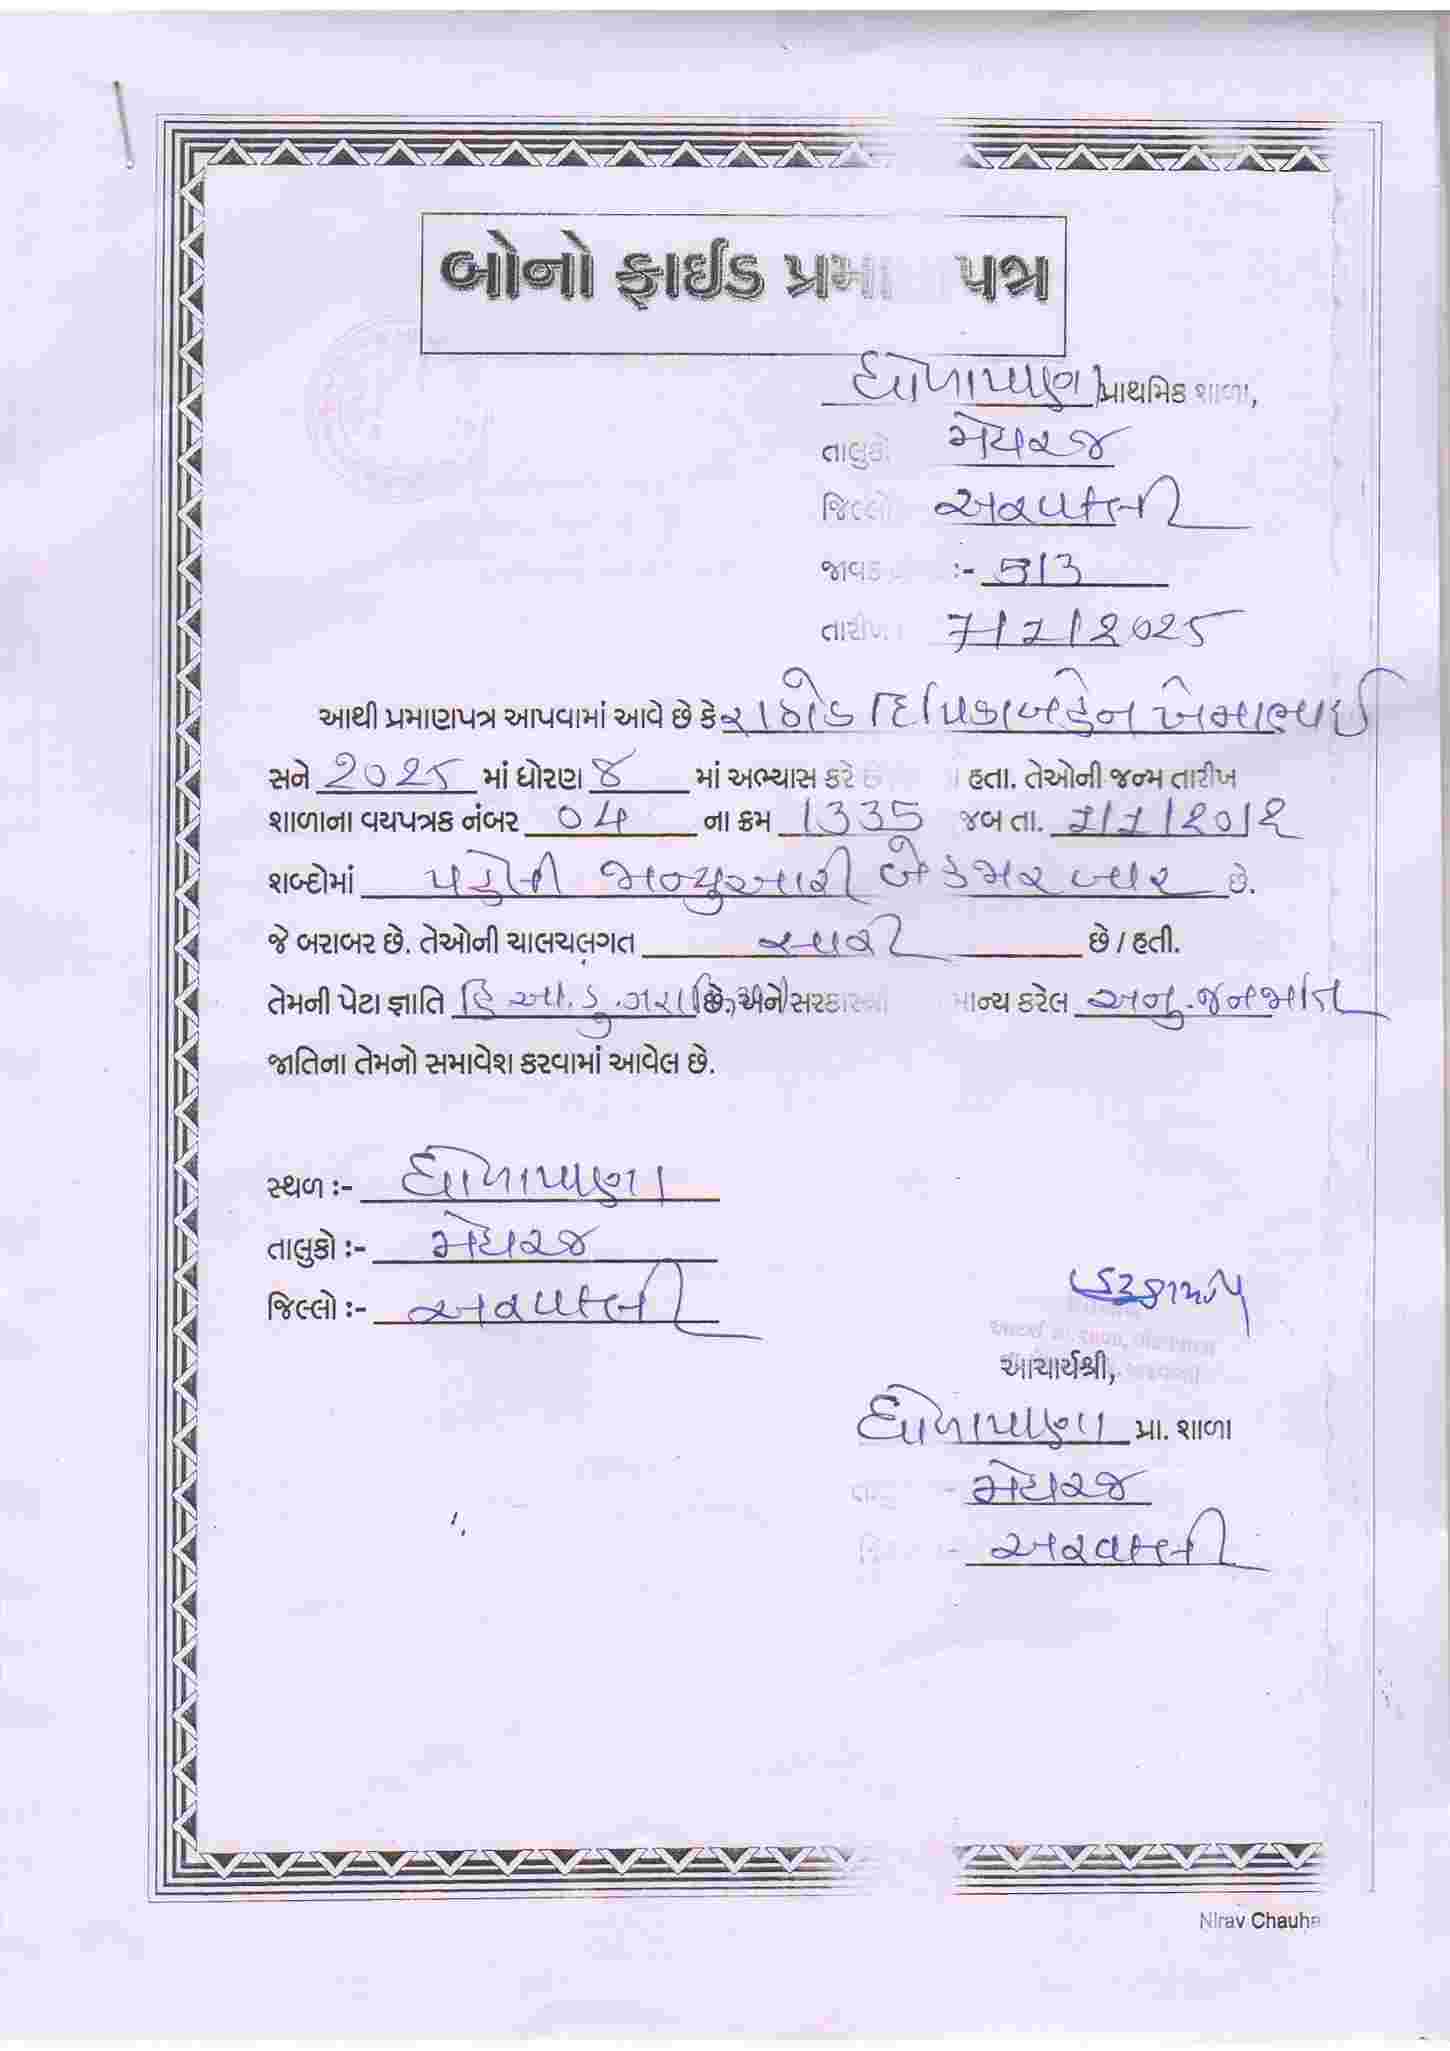 બોનો ફાઈડ પ્રમા પત્ર
ધોળાપાણા પ્રાથમિક શાળા,
તાલુકો મેઘરજ
જિલ્લો અરવલ્લી
જાવક :- 513
તારીખ 7/7/2025
આથી પ્રમાણપત્ર આપવામાં આવે છે કે રાઠોડ દિપિકાબહેન ખેમાભાઈ
સને 2025 માં ધોરણ ૪ માં અભ્યાસ કરે છે હતા. તેઓની જન્મ તારીખ
શાળાના વયપત્રક નંબર 04 ના ક્રમ 1335 જબ તા.
શબ્દોમાં પહેલી જાન્યુઆરી બે હજાર બાર છે.
જે બરાબર છે. તેઓની ચાલચલગત સારી છે / હતી.
તેમની પેટા જ્ઞાતિ હિ.આ.ડુ.ગરાસિયા છે. અને સરકારશ્રી માન્ય કરેલ અનુ.જનજાતિ
જાતિના તેમનો સમાવેશ કરવામાં આવેલ છે.
સ્થળ :- ધોળાપાણા
તાલુકો :- મેઘરજ
જિલ્લો :- અરવલ્લી
આચાર્યશ્રી,
ધોળાપાણા પ્રા. શાળા
મેઘરજ
અરવલ્લી
Nirav Chauha